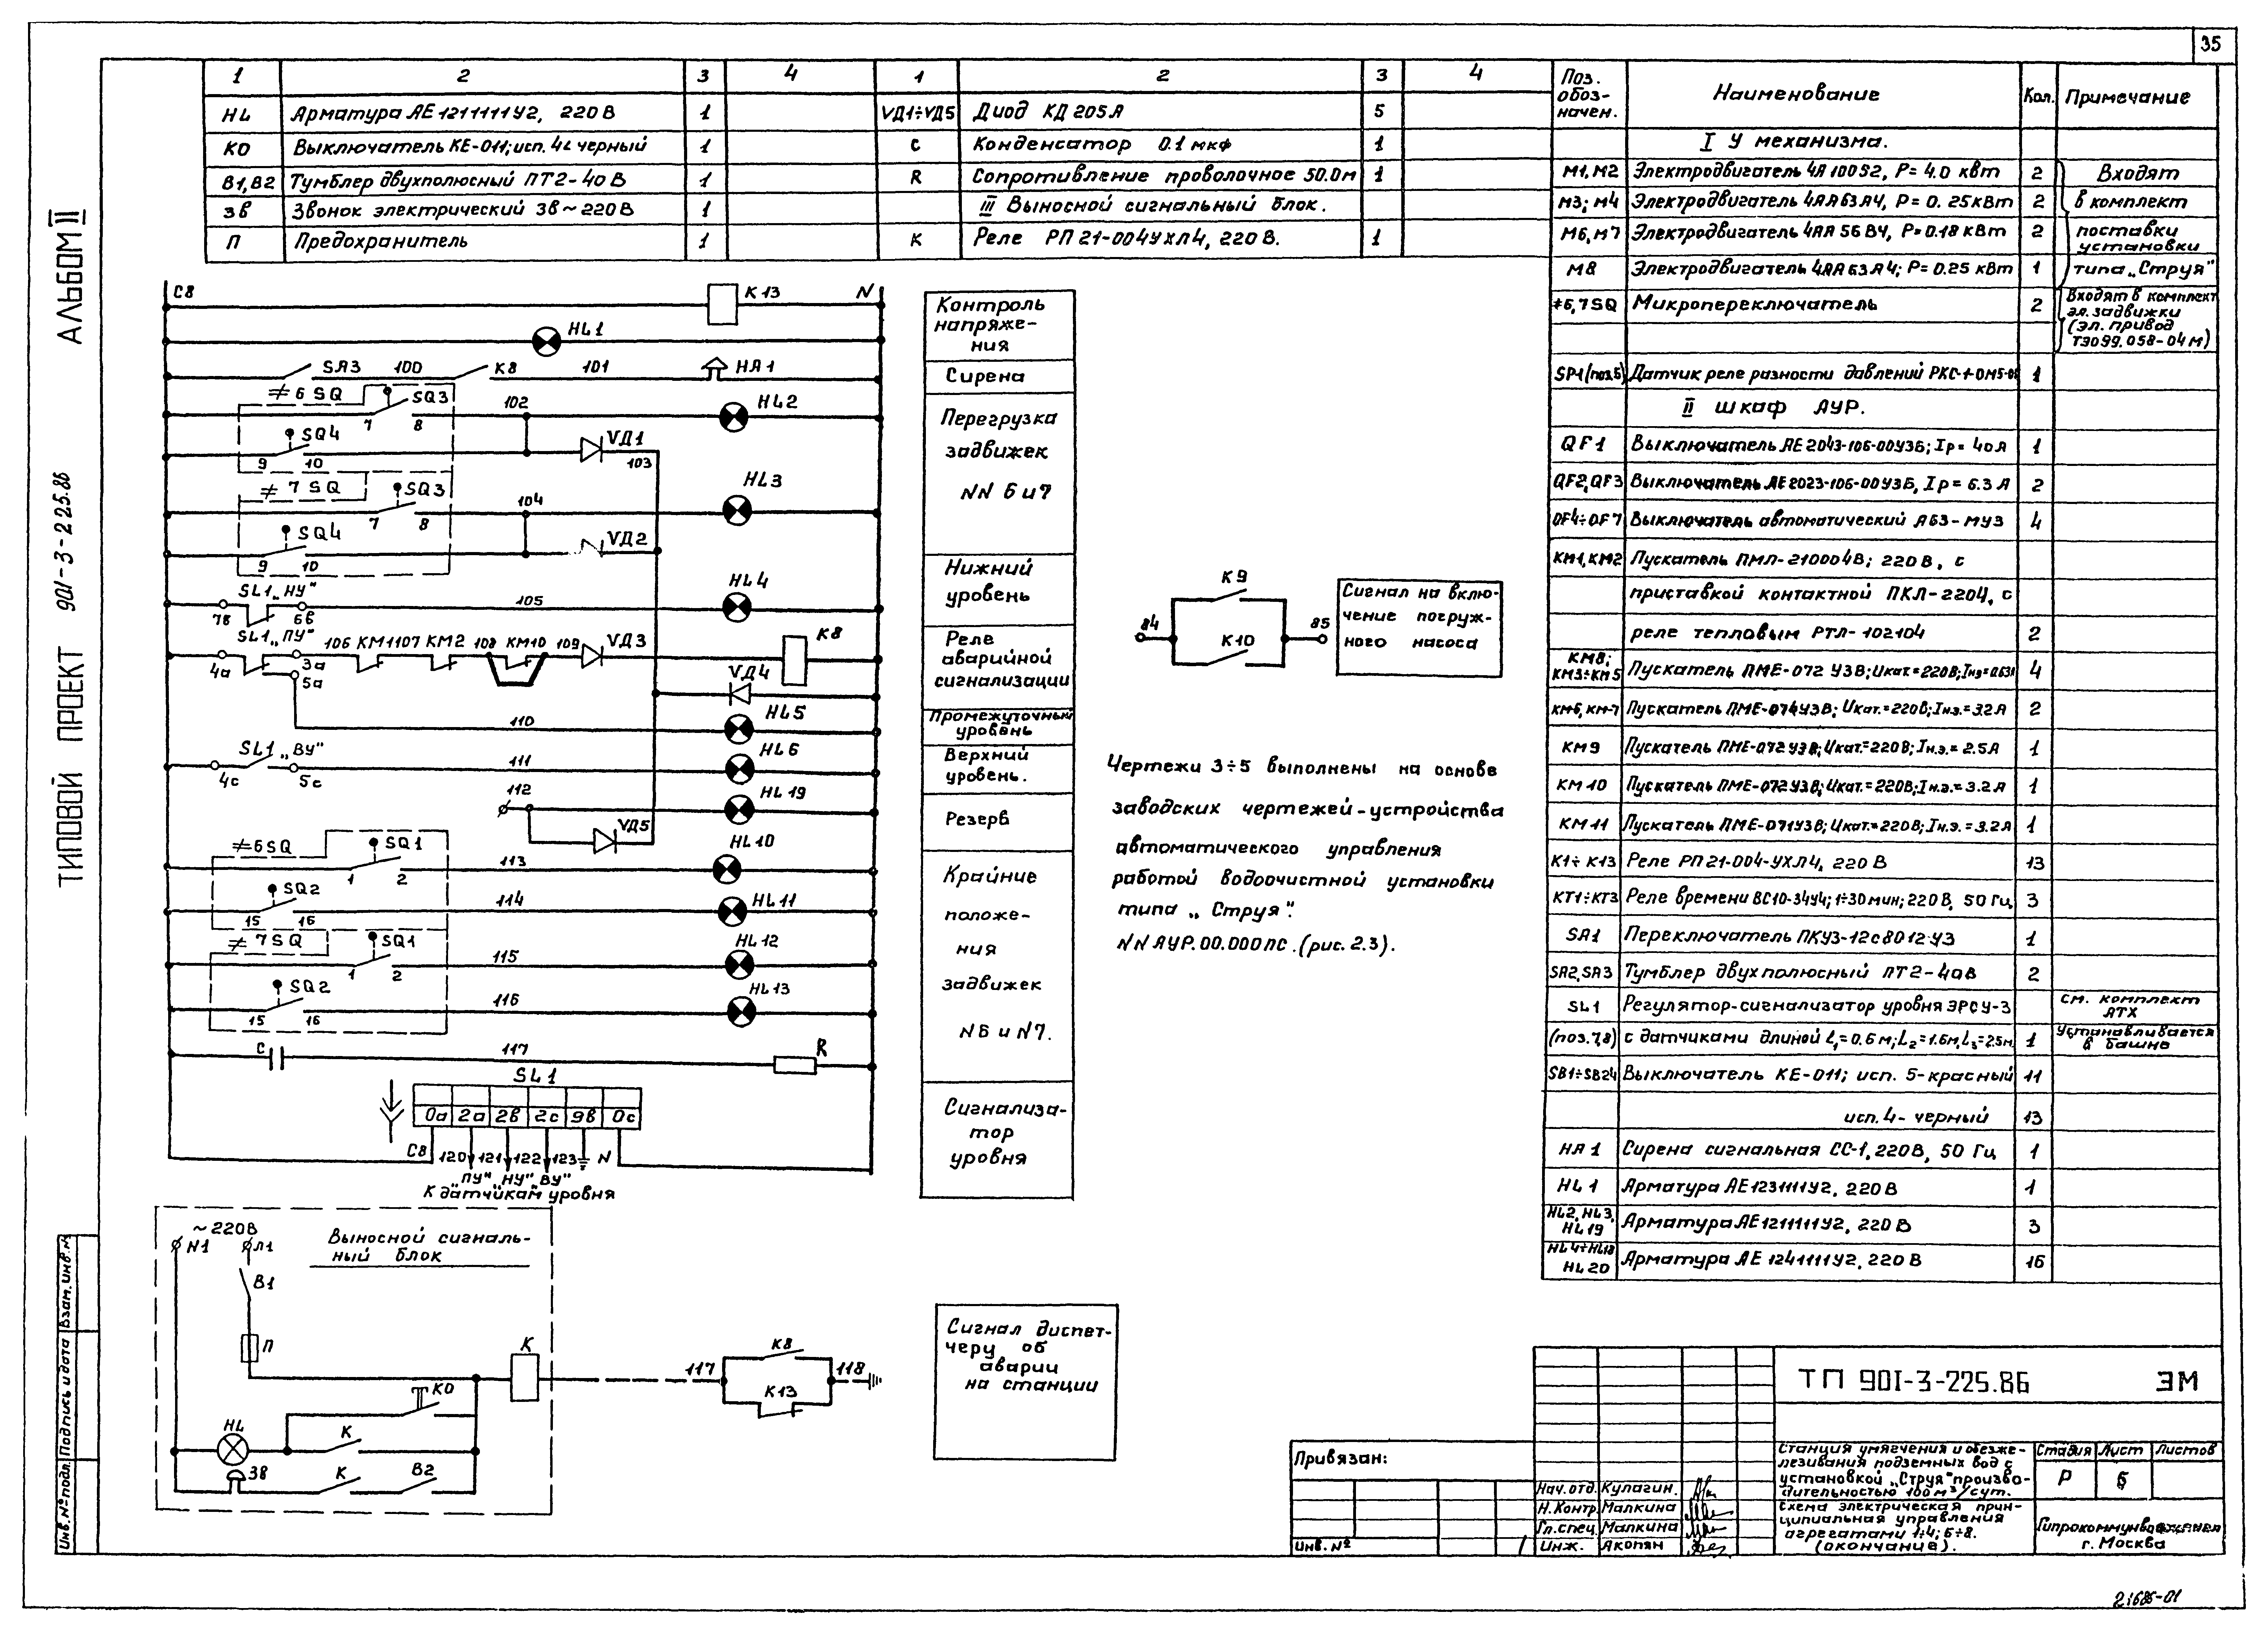 35
АЛЬБОМ II
ТИПОВОЙ ПРОЕКТ 901-3-225.86
1 2 3 4 1 2 3 4
HL Арматура АЕ 1211111У2, 220 В 1
КО Выключатель КЕ-011; исп. 4L черный 1
В1, В2 Тумблер двухполюсный ПТ2-40 В 1
Зв Звонок электрический Зв ~ 220 В 1
П Предохранитель 1
VД1÷VД5 Диод КД 205А 5
С Конденсатор 0.1 мкф 1
R Сопротивление проволочное 50.0м 1
III Выносной сигнальный блок.
К Реле РП 21-004УХЛ4, 220 В. 1
Поз. обоз-начен. Наименование Кол. Примечание
I У механизма.
М1, М2 Электродвигатель 4А 100S2, Р= 4.0 квт 2 Входят
М3; М4 Электродвигатель 4АА63А4, Р= 0.25кВт 2 в комплект
М6, М7 Электродвигатель 4АА 56 В4, Р=0.18 кВт 2 поставки установки
М8 Электродвигатель 4АА 63 А 4; Р= 0.25 кВт 1 типа „Струя"
≠6,7SQ Микропереключатель 2 Входят в комплект эл. задвижки (эл. привод ТЭ099.058-04М)
SP1 (поз.5) Датчик реле разности давлений 1
II шкаф АУР.
QF1 Выключатель АЕ 2043-106-00У3Б; Iр= 40А 1
QF2, QF3 Выключатель АЕ2023-106-00У3Б, Iр= 6.3 А 2
QF4÷QF7 Выключатель автоматический А63-МУ3 4
КМ1, КМ2 Пускатель ПМЛ-210004В; 220 В, с
приставкой контактной ПКЛ-2204, с
реле тепловым РТЛ-102104 2
КМ8; КМ3÷КМ5 Пускатель ПМЕ-072 У3В; Uкат.=220В; 4
КМ6, КМ-7 Пускатель ПМЕ-074У3В; Uкат.=220В; Iн.э.=3.2 А 2
КМ9 Пускатель ПМЕ-072 У3В; Uкат.=220В; Iн.э.= 2.5А 1
КМ 10 Пускатель ПМЕ-072У3В; Uкат.=220В; Iн.э.= 3.2 А 1
КМ 11 Пускатель ПМЕ-071У3В; Uкат.=220В; Iн.э.=3.2А 1
К1÷К13 Реле РП 21-004-УХЛ4, 220 В 13
КТ1÷КТ3 Реле времени ВС10-34У4; 1÷30 мин; 220 В, 50 Гц 3
SA1 Переключатель ПКУ3-12с8012-У3 1
SA2, SA3 Тумблер двухполюсный ПТ2-40В 2
SL1 Регулятор-сигнализатор уровня ЭРСУ-3 См. комплект АТХ
(поз.7,8) с датчиками длиной L₁=0.6 м; L₂=1.6м, L₃=2.5м. 1 Устанавливается в башне
SB1÷SB24 Выключатель КЕ-011; исп. 5-красный 11
исп. 4-черный 13
НА1 Сирена сигнальная СС-1, 220В, 50 Гц 1
HL1 Арматура АЕ123111У2, 220 В 1
HL2, HL3, HL19 Арматура АЕ1211111У2, 220 В 3
HL4÷HL18 HL20 Арматура АЕ 124111У2, 220 В 16
С8 К13 N
HL1
SA3 100 К8 101 НА1
≠6SQ SQ3 7 8 102 HL2
SQ4 9 10 VД1 103
≠7SQ SQ3 7 8 104 HL3
SQ4 9 10 VД2
SL1 „НУ" 7в 6в 105 HL4
SL1 „ПУ" 4а 3а 5а 106 КМ1 107 КМ2 108 КМ10 109 VД3 К8
VД4
110 HL5
SL1 „ВУ" 4с 5с 111 HL6
112 HL19
VД5
≠6SQ SQ1 1 2 113 HL10
SQ2 15 16 114 HL11
≠7SQ SQ1 1 2 115 HL12
SQ2 15 16 116 HL13
С 117 R
SL1
0а 2а 2в 2с 9в 0с
С8 120 121 122 123 N
„ПУ" „НУ" „ВУ"
К датчикам уровня
Контроль напряже-ния
Сирена
Перегрузка
задвижек
NN 6 и 7
Нижний
уровень
Реле
аварийной
сигнализации
Промежуточный
уровень
Верхний
уровень.
Резерв
Крайние
положе-
ния
задвижек
N6 и N7.
Сигнализа-
тор
уровня
84 К9 К10 85
Сигнал на вклю-
чение погруж-
ного насоса
Чертежи 3÷5 выполнены на основе
заводских чертежей-устройства
автоматического управления
работой водоочистной установки
типа „Струя".
NN АУР.00.000ПС. (рис. 2.3).
~220В
N1 Л1
Выносной сигналь-
ный блок
В1
П
К
КО
HL К
Зв К В2
117 К8 К13 118
Сигнал диспет-
черу об
аварии
на станции
Взам. инв. №
Подпись и дата
Инв. № подл.
Привязан:
Инв. №
Нач. отд. Кулагин.
Н. Контр Малкина
Гл. спец. Малкина
Инж. Акопян
ТП 901-3-225.86 ЭМ
Станция умягчения и обезже-
лезивания подземных вод с
установкой „Струя" произво-
дительностью 100 м³/сут.
Стадия Лист Листов
Р 5
Схема электрическая прин-
ципиальная управления
агрегатами 1÷4; 6÷8.
(окончание).
Гипрокоммунводоканал
г. Москва
21686-01